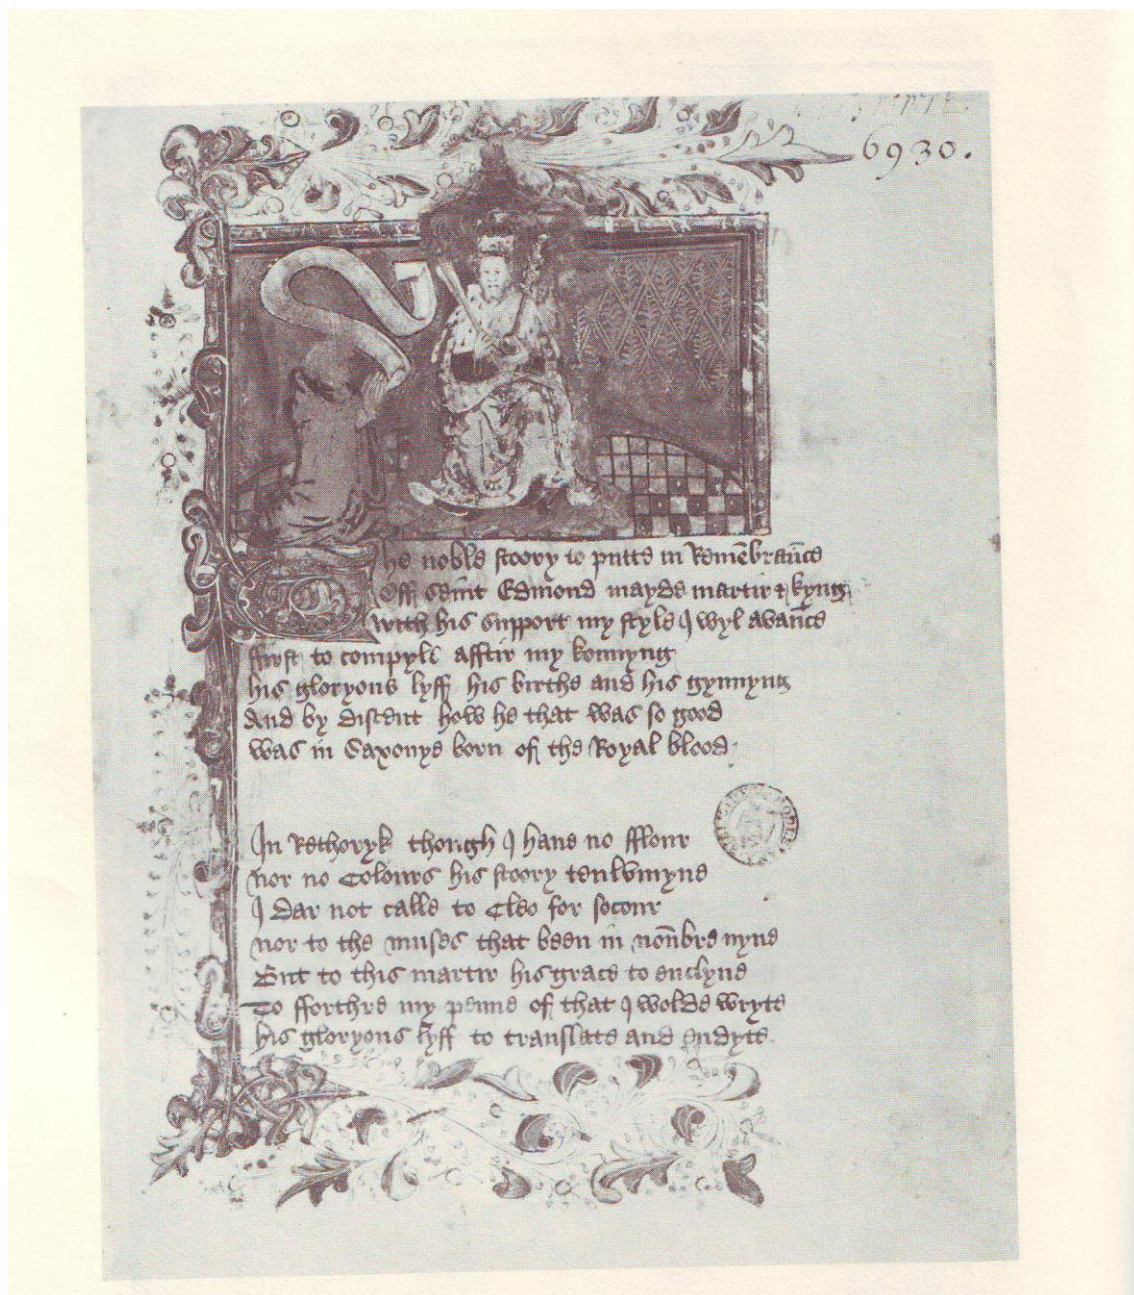 6930.
The noble stoory to putte in Remēbraūce
Off Seint Edmond mayde martir & kyng
with his support my style I wyl avaūce
ffirst to compyle afftir my konnyng
his gloryous lyff his birthe and his gynnyng
And by discent how he that was so good
was in Saxonye born of the Royal blood
In Rethoryk though I haue no fflour
nor no Colours his stoory tenlvmyne
I dar not calle to Cleo for socour
nor to the muses that been in noūbre nyne
But to this martir his grace to enclyne
To fforthre my penne of that I wolde wryte
his gloryous lyff to translate and endyte